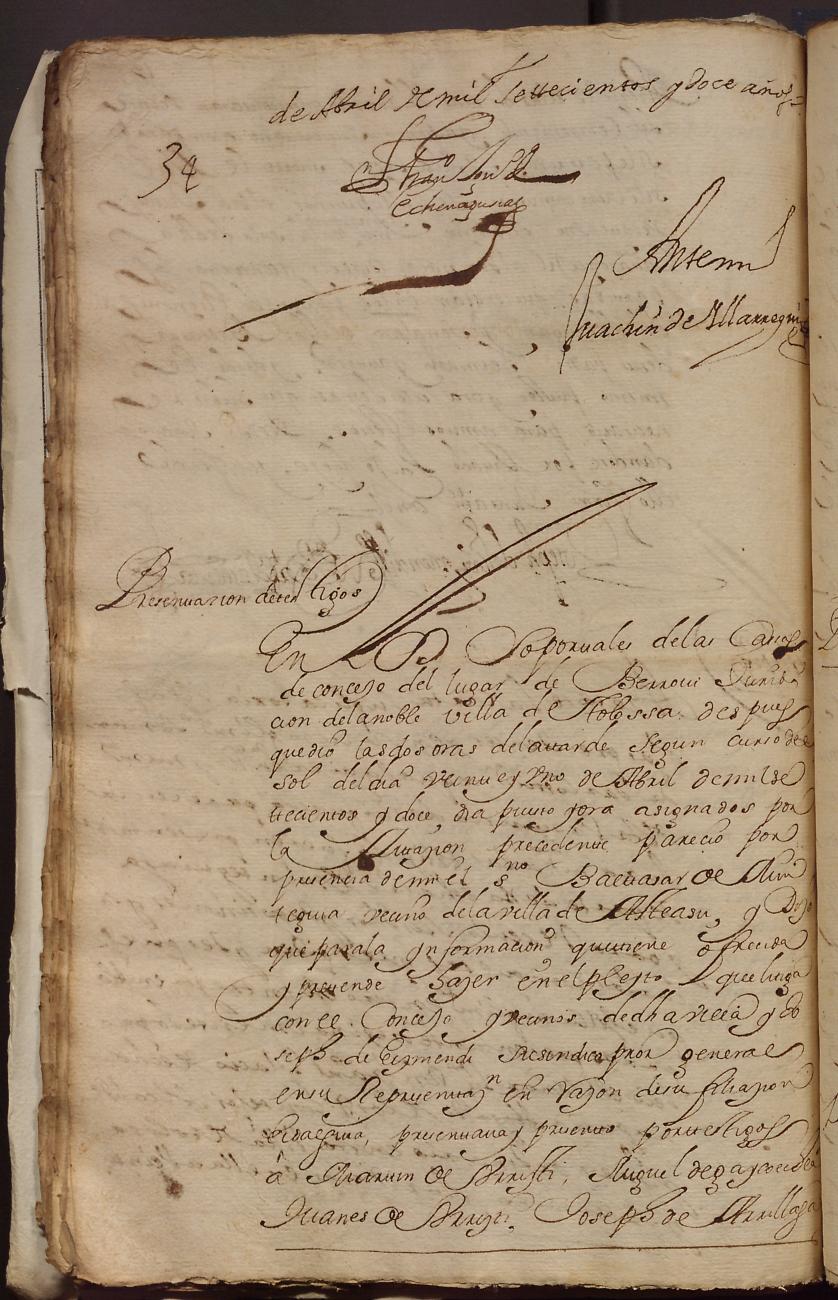 de Abril de mil settecientos y doce años
34
Echenagusia
Antemi
Juachin de Yllarregui
Presentacion de testigos
En los soportales de las Cassas
de concejo del lugar de Berrovi Juridi
cion de la noble villa de Tolossa despues
que dio las dos oras de la tarde segun curso de
sol del dia veinte y Uno de Abril de mil se
tecientos y doce, dia puesto y ora asignados por
la Citazion precedente parecio por
presencia de mi el sno Baltasar de
tegui vecino de la villa de Asteasu, y Dijo
que para la ynformacion que tiene ofrecida
y pretende hazer en el pleyto que litiga
con el Concejo y vecinos de dha villa y Jo
seph de Eizmendi su sindico pror general
en su Representazn en razon de su filiazion
hidalguia, presentava y presento por testigos
â Martin de, Miguel de
Juanes de, Joseph de Arrillaga